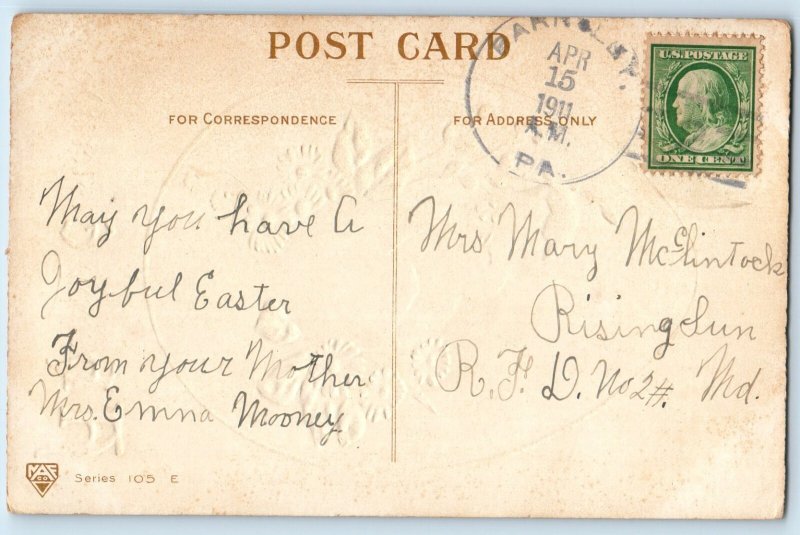 POST CARD
APR
15
1911
A.M.
PA.
U.S. POSTAGE
ONE CENT
FOR CORRESPONDENCE
FOR ADDRESS ONLY
May you have A
Joyful Easter
From your Mother
Mrs. Emma Mooney
Mrs Mary McClintock
Rising Sun
R. F. D. No 2#. Md.
Series 105 E